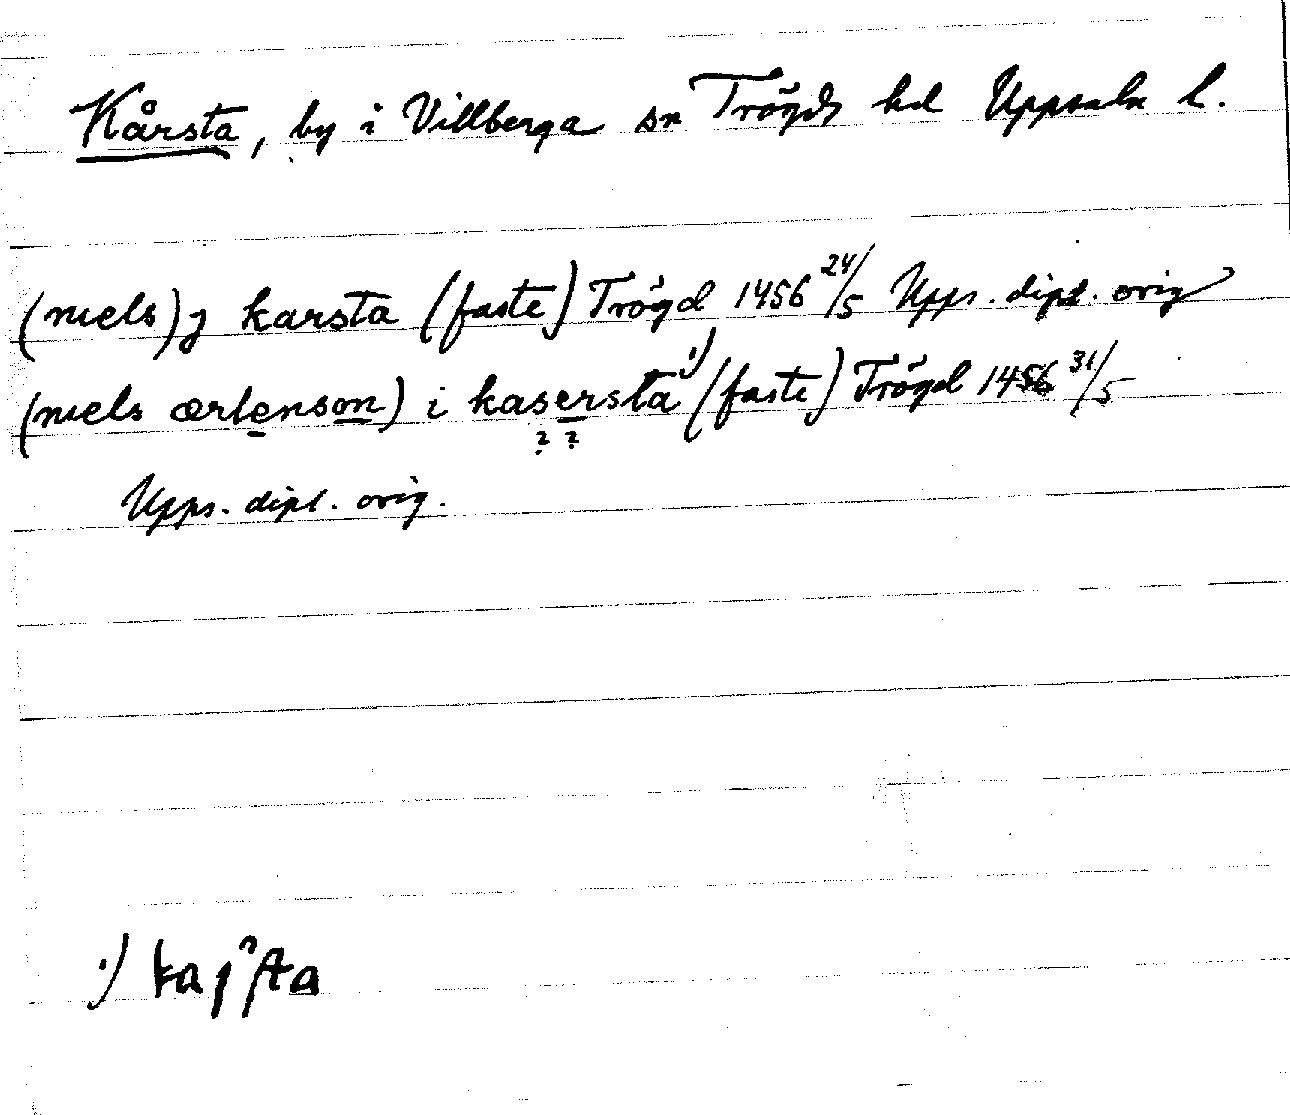 Kårsta, by i Villberga sn Trögds hd Uppsala l.
(niels) j karsta (faste) Trögd 1456 24/5 Upps. dipl. orig
(niels ærlenson) i kasersta 1) (faste) Trögd 1456 31/5
? ?
Upps. dipl. orig.
1) kaſ͛ſta